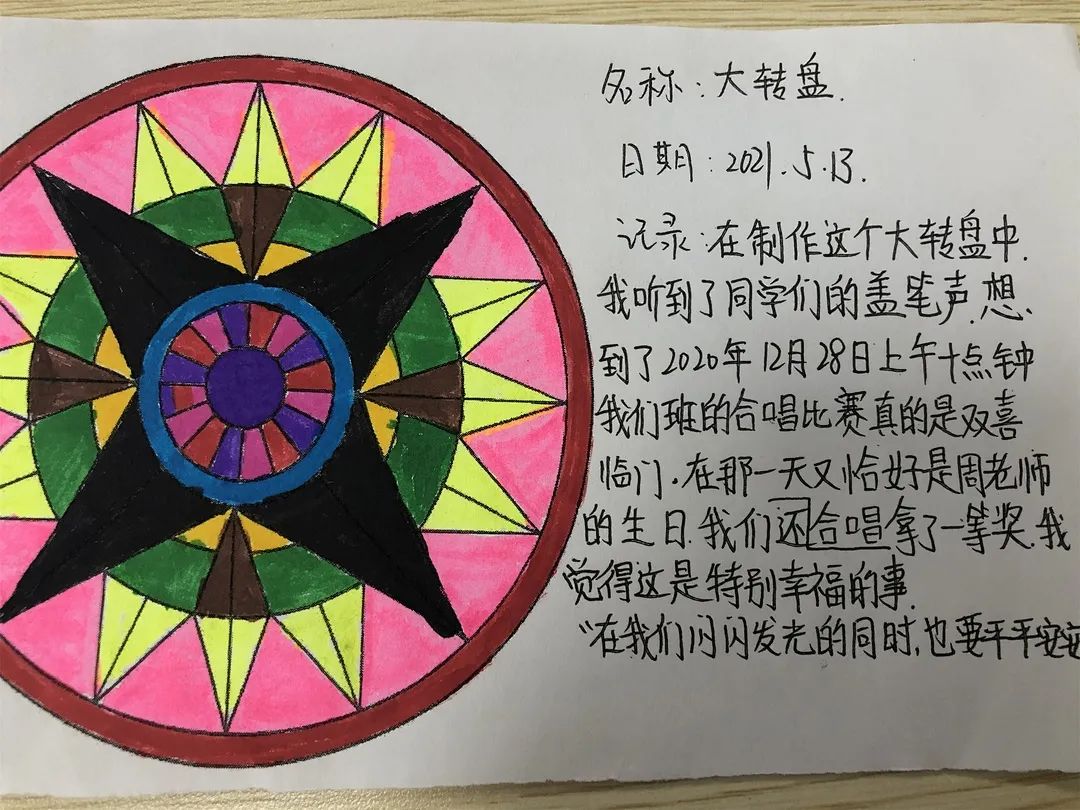 名称：大转盘.
日期：2021.5.13.
记录：在制作这个大转盘中.
我听到了同学们的盖笔声.想.
到了2020年12月28日上午十点钟
我们班的合唱比赛真的是双喜
临门.在那一天又恰好是周老师
的生日.我们还合唱拿了一等奖.我
觉得这是特别幸福的事.
“在我们闪闪发光的同时,也要平平安安